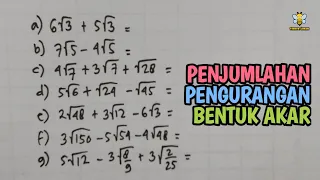 a) 6√3 + 5√3 =
b) 7√5 - 4√5 =
c) 4√7 + 3√7 + √28 =
d) 5√6 + √24 - √45 =
e) 2√48 + 3√12 - 6√3 =
f) 3√150 - 5√54 - 4√48 =
g) 5√12 - 3√(8/9) + 3√(2/25) =
PENJUMLAHAN
PENGURANGAN
BENTUK AKAR